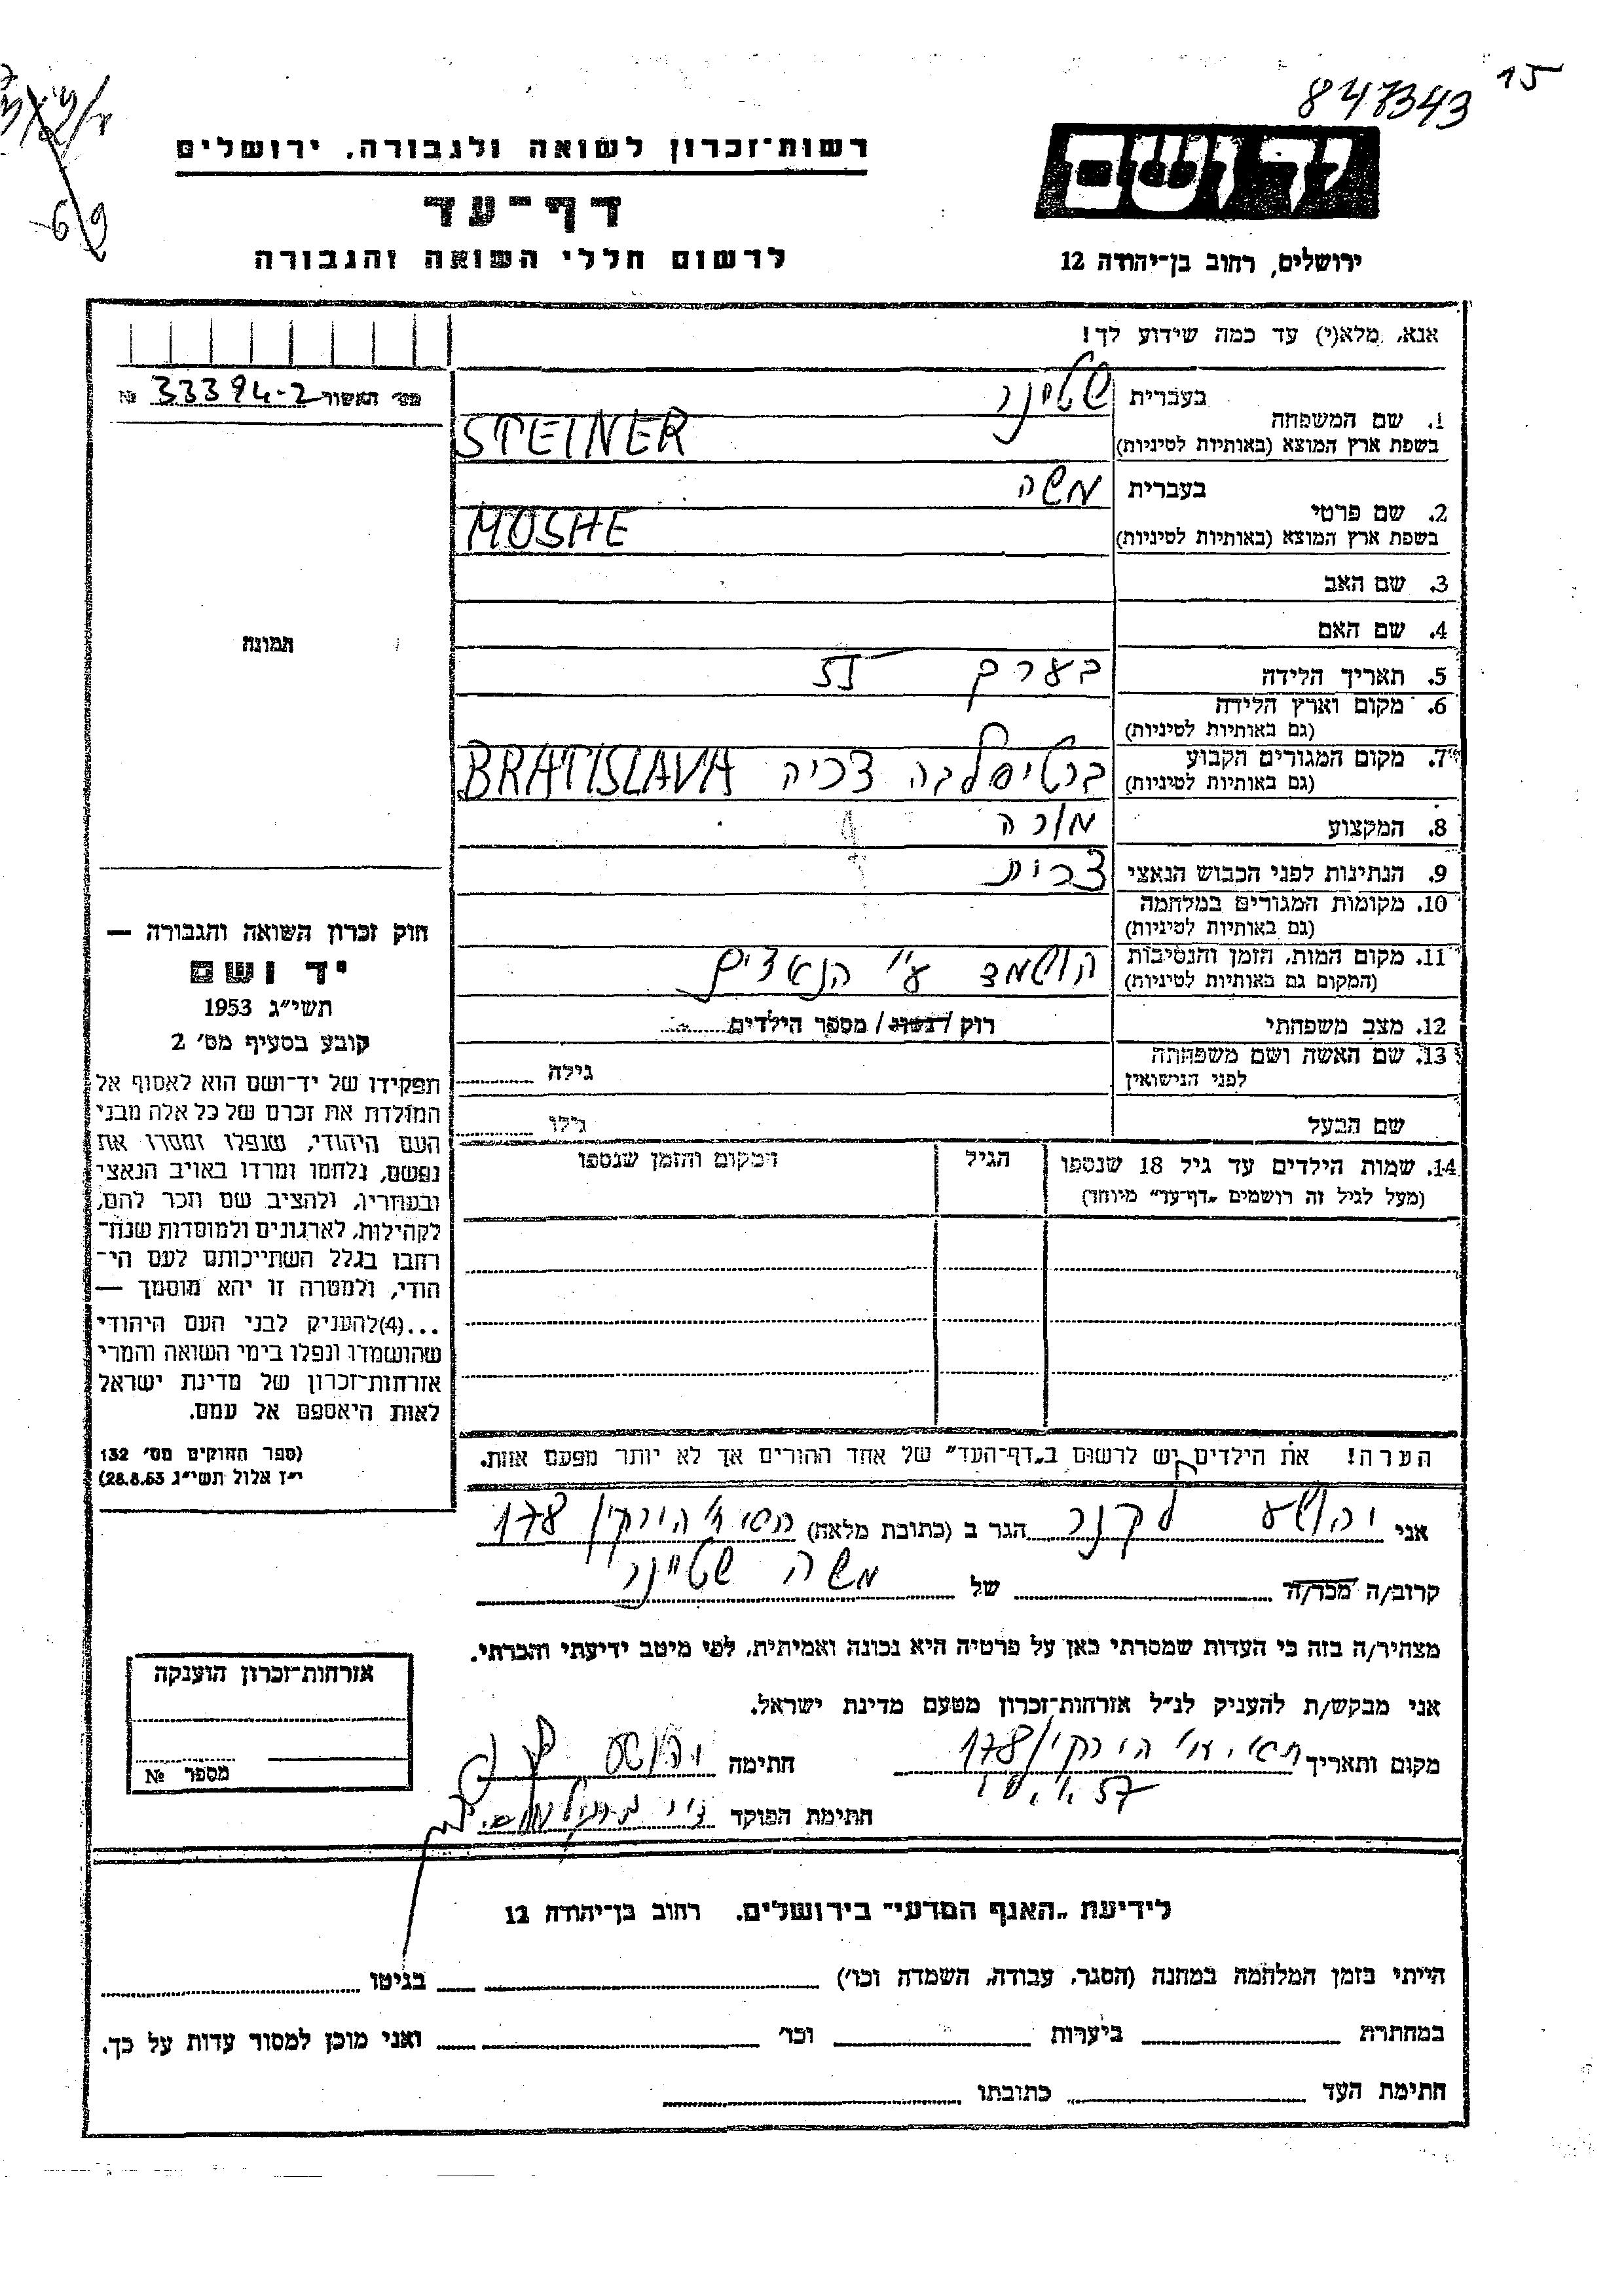 847343 15
רשות־זכרון לשואה ולגבורה, ירושלים
דף־עד
לרשום חללי השואה והגבורה
יד ושם
ירושלים, רחוב בן־יהודה 12
אנא, מלא(י) עד כמה שידוע לך!
מס׳ האשור 33394-2 №
1. שם המשפחה
בעברית שטיינר
בשפת ארץ המוצא (באותיות לטיניות) STEINER
2. שם פרטי
בעברית משה
בשפת ארץ המוצא (באותיות לטיניות) MOSHE
3. שם האב
4. שם האם
תמונה
5. תאריך הלידה בערך
6. מקום וארץ הלידה
(גם באותיות לטיניות)
7. מקום המגורים הקבוע ברטיסלבה צכיה BRATISLAVA
(גם באותיות לטיניות)
8. המקצוע מורה
9. הנתינות לפני הכבוש הנאצי
10. מקומות המגורים במלחמה
(גם באותיות לטיניות)
11. מקום המות, הזמן והנסיבות הושמד ע״י הנאצים
(המקום גם באותיות לטיניות)
12. מצב משפחתי רוק / נשוי / מספר הילדים
13. שם האשה ושם משפחתה
לפני הנישואין גילה
שם הבעל גילו
14. שמות הילדים עד גיל 18 שנספו הגיל המקום והזמן שנספו
(מעל לגיל זה רושמים „דף־עד״ מיוחד)
חוק זכרון השואה והגבורה —
יד ושם
תשי״ג 1953
קובע בסעיף מס׳ 2
תפקידו של יד־ושם הוא לאסוף אל
המולדת את זכרם של כל אלה מבני
העם היהודי, שנפלו ומסרו את
נפשם, נלחמו ומרדו באויב הנאצי
ובעוזריו, ולהציב שם וזכר להם,
לקהילות, לארגונים ולמוסדות שנח־
רבו בגלל השתייכותם לעם הי־
הודי, ולמטרה זו יהא מוסמך —
...(4)להעניק לבני העם היהודי
שהושמדו ונפלו בימי השואה והמרי
אזרחות־זכרון של מדינת ישראל
לאות היאספם אל עמם.
(ספר החוקים מס׳ 132
י״ז אלול תשי״ג 28.8.53)
הערה! את הילדים יש לרשום ב„דף־העד״ של אחד ההורים אך לא יותר מפעם אחת.
אני יהושע לקנר הגר ב (כתובת מלאה) הירקון 178
קרוב/ה מכר/ה של משה שטיינר
מצהיר/ה בזה כי העדות שמסרתי כאן על פרטיה היא נכונה ואמיתית, לפי מיטב ידיעתי והכרתי.
אני מבקש/ת להעניק לנ״ל אזרחות־זכרון מטעם מדינת ישראל.
מקום ותאריך הירקון 178 חתימה יהושע
חתימת הפוקד
אזרחות־זכרון הוענקה
מספר №
לידיעת „האגף המדעי״ בירושלים, רחוב בן־יהודה 12
הייתי בזמן המלחמה במחנה (הסגר, עבודה, השמדה וכו׳) בגיטו
במחתרת ביערות וכו׳ ואני מוכן למסור עדות על כך.
חתימת העד כתובתו